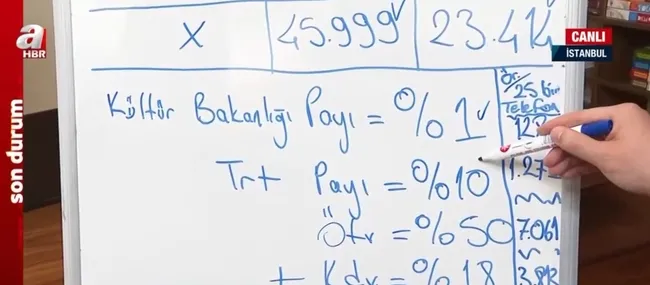 a
HBR
CANLI
İSTANBUL
son durum
X 45.999 23.414
Ör/
25 bin
Telefon
Kültür Bakanlığı Payı = %1
Trt Payı = %10
Ötv = %50 7.061
+ Kdv = %18 3.813